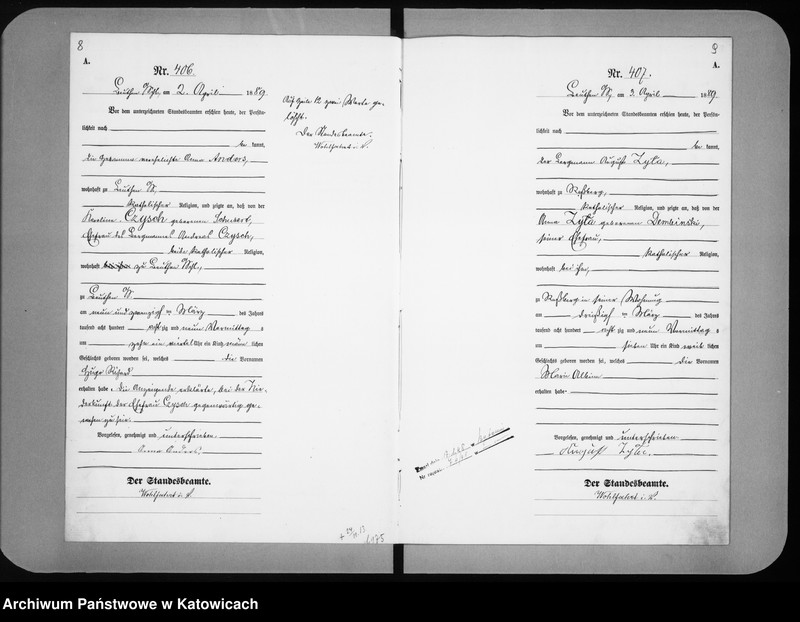 8
A.
Nr. 406.
Beuthen O/Schl. am 2. April 1889
Vor dem unterzeichneten Standesbeamten erschien heute, der Persön-
lichkeit nach
kannt,
die Hebamme verehelichte Anna Anders,
wohnhaft zu Beuthen O/S,
katholischer Religion, und zeigte an, daß von der
Karoline Czysch geborenen Schubert,
Ehefrau des Bergmannes Andreas Czysch,
beide katholischer Religion,
wohnhaft zu Beuthen O/Schl.,
zu Beuthen O/S.
am neun und zwanzigsten März des Jahres
tausend acht hundert achtzig und neun Vormittags
um zehn ein viertel Uhr ein Kind männlichen
Geschlechts geboren worden sei, welches die Vornamen
Hugo Richard
erhalten habe. Die Anzeigende erklärte, bei der Nie-
derkunft der Ehefrau Czysch gegenwärtig ge-
wesen zu sein.
Vorgelesen, genehmigt und unterschrieben
Anna Anders
Der Standesbeamte.
Wohlfahrt i. V.
Auf Zeile 12 zwei Worte ge-
löscht.
Der Standesbeamte.
Wohlfahrt i. V.
9
A.
Nr. 407.
Beuthen O/S, am 3. April 1889
Vor dem unterzeichneten Standesbeamten erschien heute, der Persön-
lichkeit nach
kannt,
der Bergmann August Zyla,
wohnhaft zu Roßberg,
katholischer Religion, und zeigte an, daß von der
Anna Zyla geborenen
seiner Ehefrau,
katholischer Religion,
wohnhaft bei ihm,
zu Roßberg in seiner Wohnung
am dreißigsten März des Jahres
tausend acht hundert achtzig und neun Vormittags
um sieben Uhr ein Kind weiblichen
Geschlechts geboren worden sei, welches die Vornamen
Marie Albine
erhalten habe.
Vorgelesen, genehmigt und unterschrieben
August Zyla.
Der Standesbeamte.
Wohlfahrt i. V.
Archiwum Państwowe w Katowicach